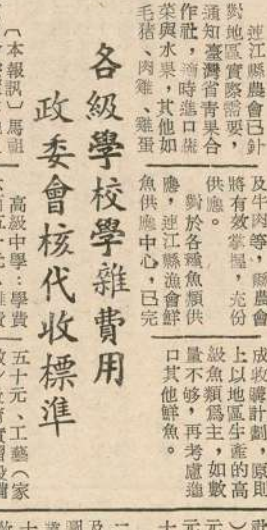 連江縣農會已針
對地區實際需要,
通知臺灣省青果合
作社,適時進口蔬
菜與水果,其他如
毛猪、肉雞、雞蛋
及牛肉等,縣農會
將有效掌握,充份
供應。
對於各種魚類供
應,連江縣漁會鮮
魚供應中心,已完
成收購計劃,原則
上以地區生產的高
級魚類爲主,如數
量不够,再考慮進
口其他鮮魚。
各級學校學雜費用
政委會核代收標準
〔本報訊〕馬祖
高級中學:學費
五十元、工藝(家